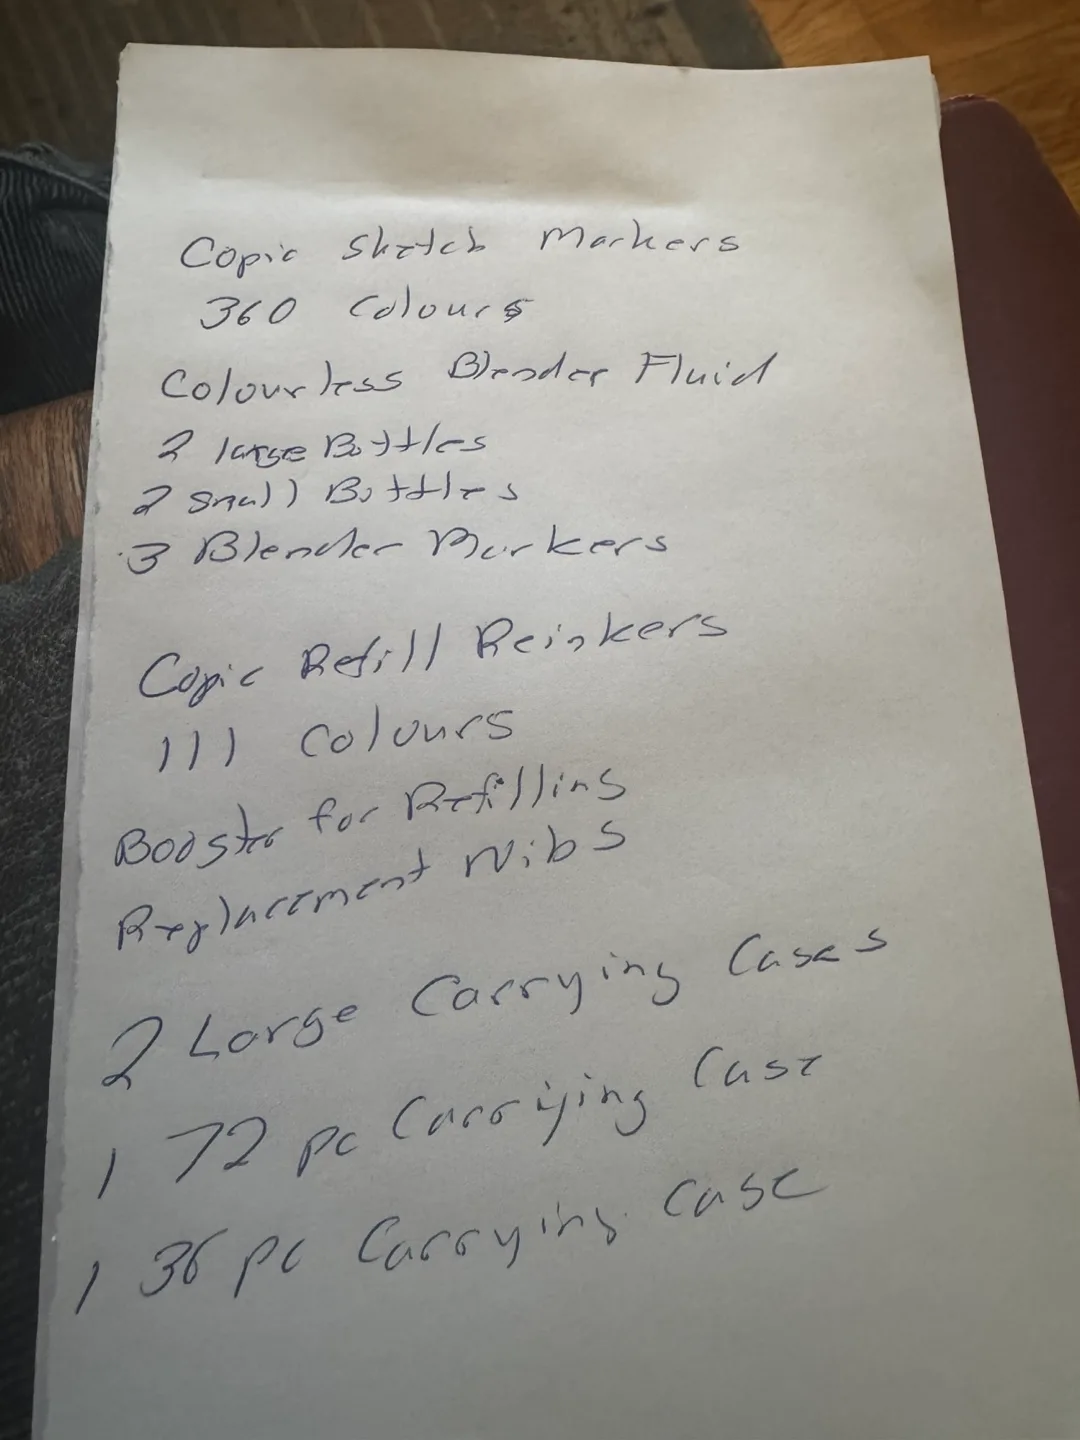 Copic Sketch Markers
360 Colours
Colourless Blender Fluid
2 large Bottles
2 Small Bottles
3 Blender Markers
Copic Refill Reinkers
111 Colours
Booster for Refilling
Replacement Nibs
2 Large Carrying Cases
1 72 pc Carrying Case
1 36 pc Carrying Case